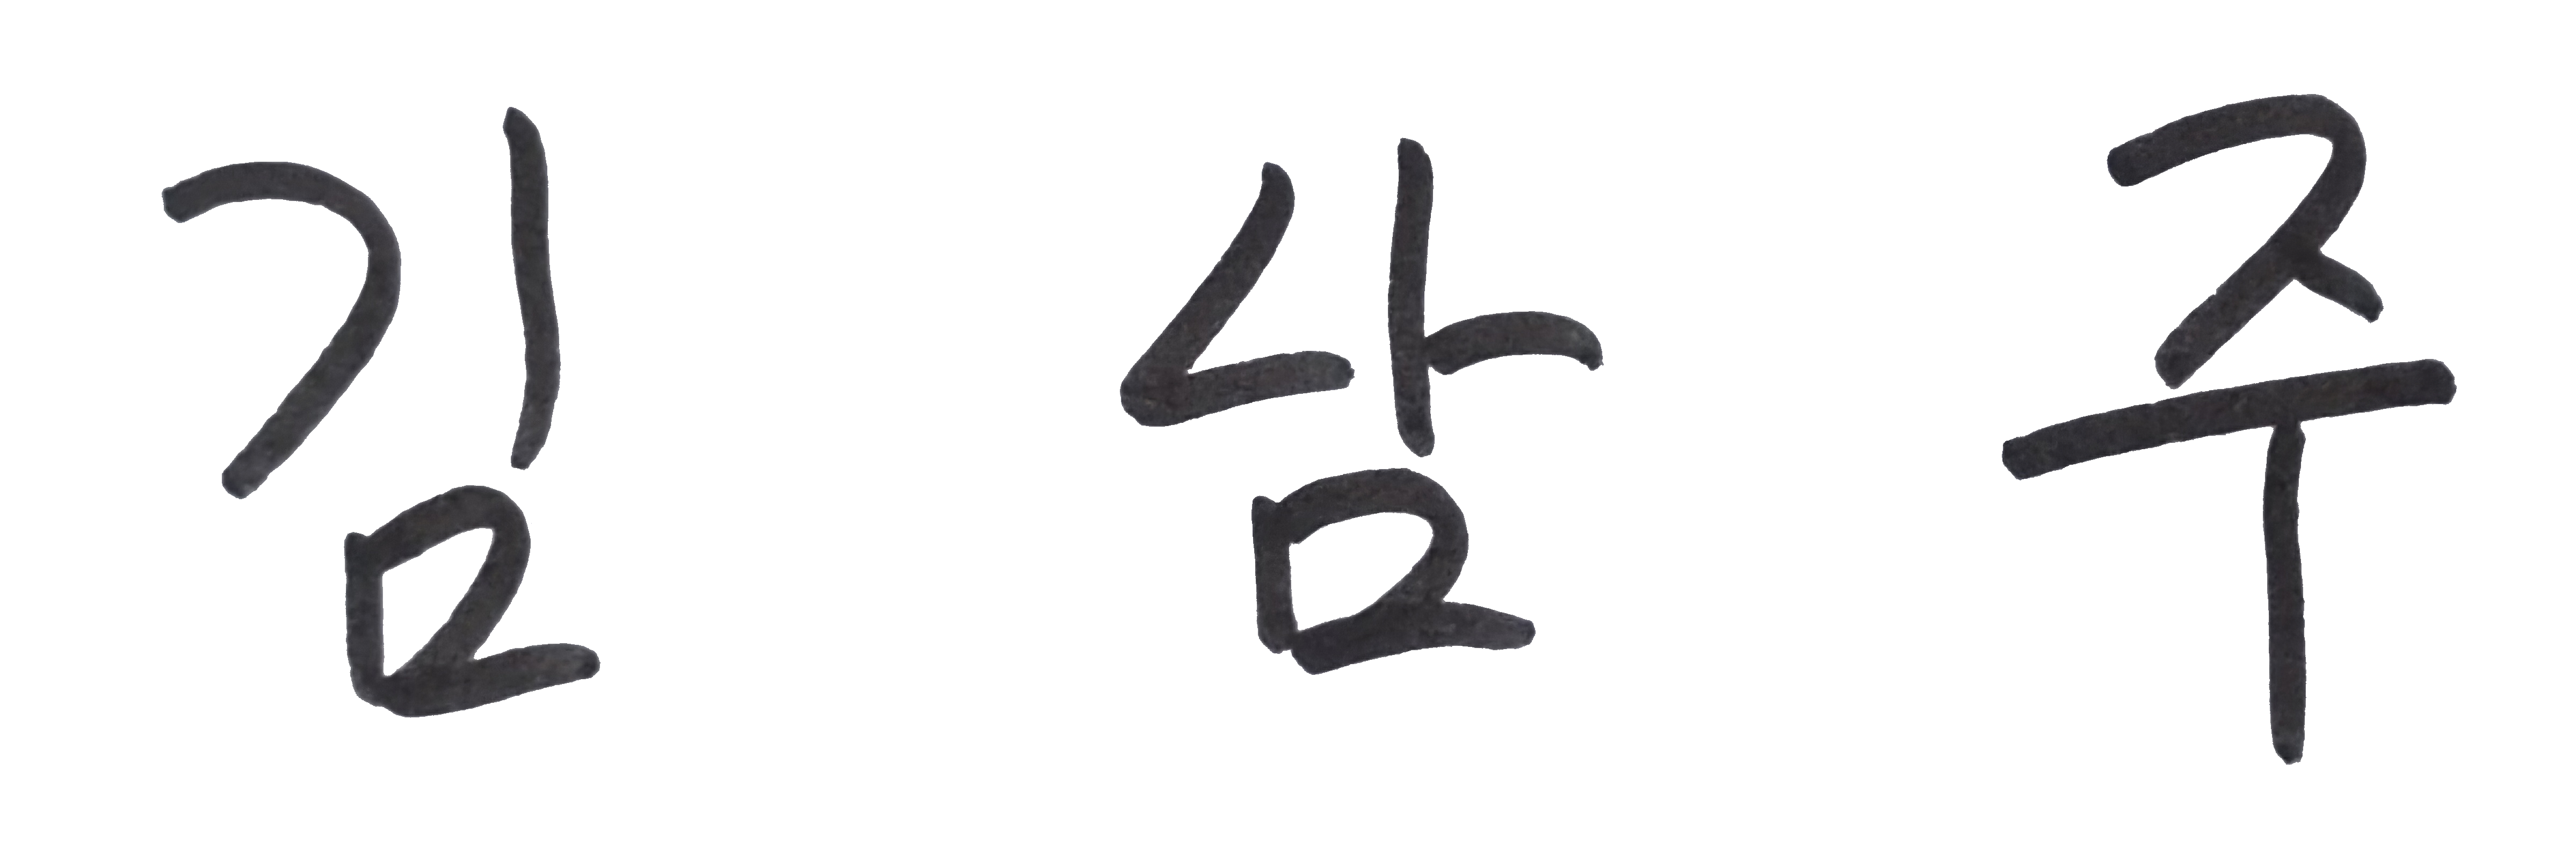 김 삼 주